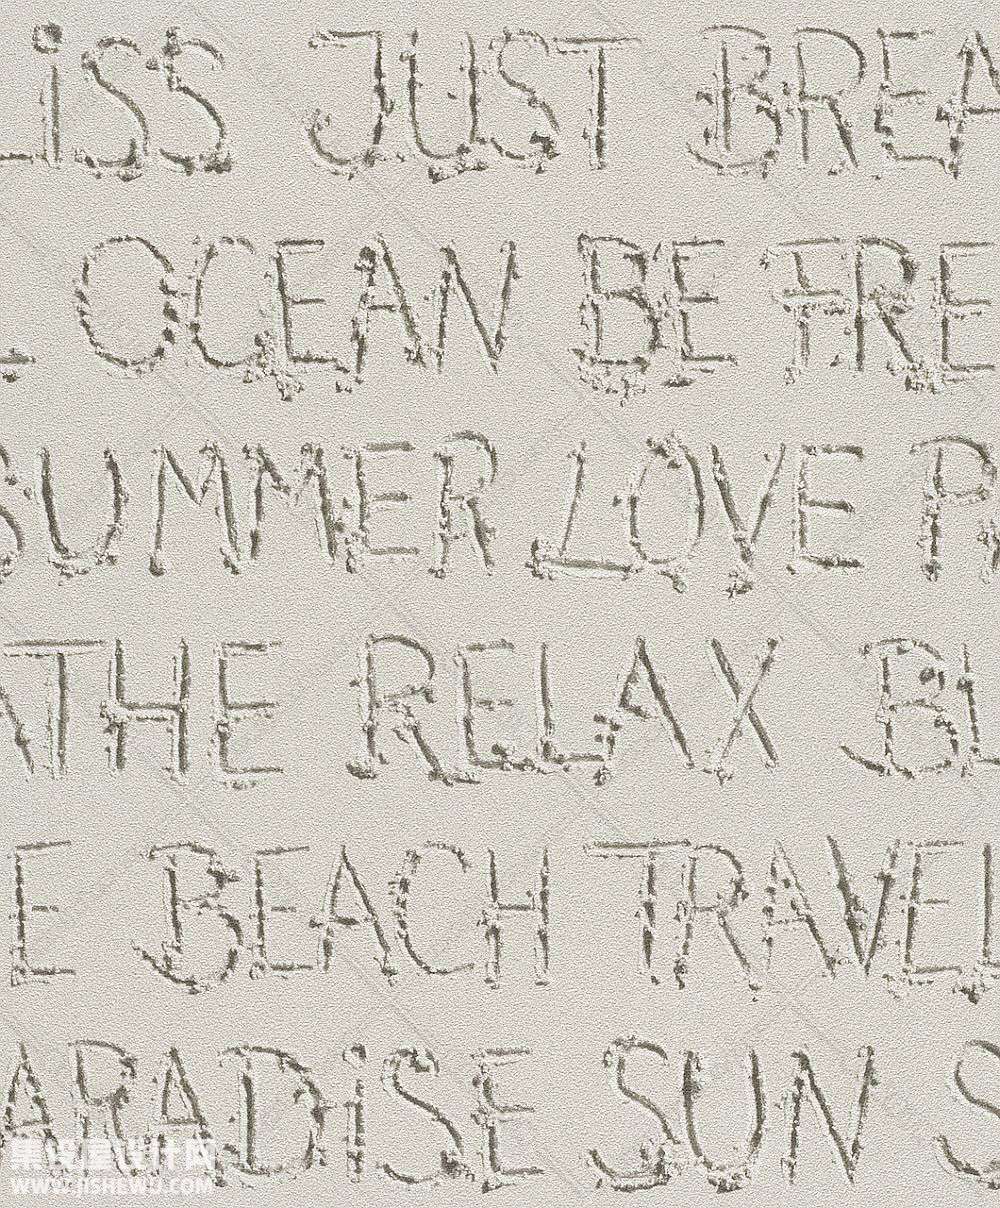 LiSS JUST BREA
L OCEAN BE FRE
SUMMER LOVE P
ATHE RELAX BL
E BEACH TRAVEL
ARADiSE SUN S
WWW.JISHEWU.COM